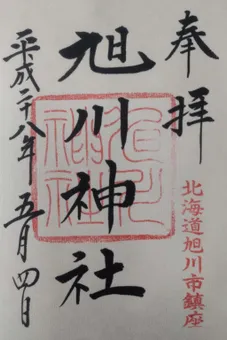 奉拝
北海道旭川市鎮座
旭川神社
旭川神社
平成二十八年五月四日